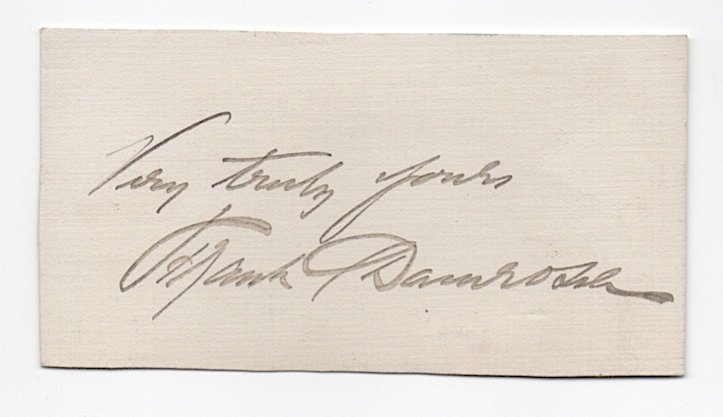 Very truly yours
Frank Damrosch